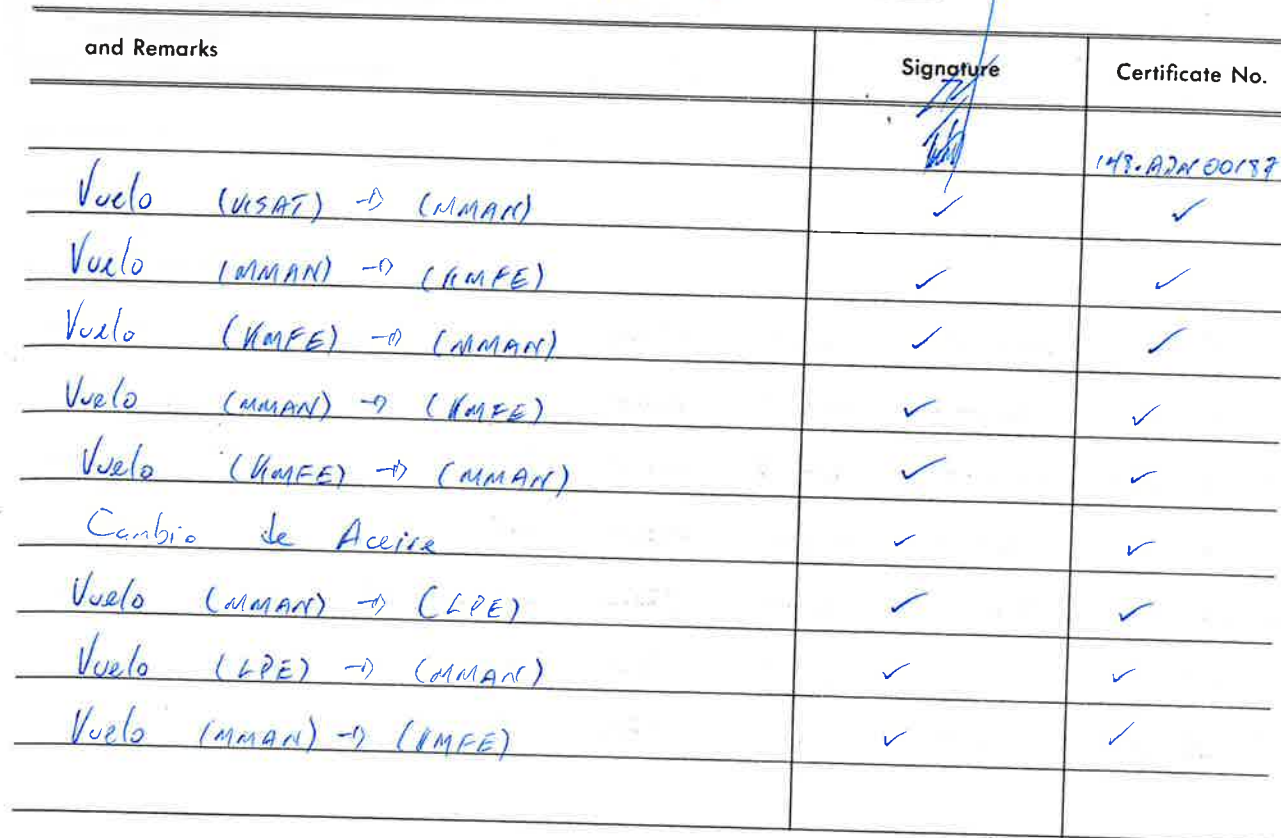 and Remarks Signature Certificate No.
Vuelo (KSAT) → (MMAN) ✓ ✓
Vuelo (MMAN) → (KMFE) ✓ ✓
Vuelo (KMFE) → (MMAN) ✓ ✓
Vuelo (MMAN) → (KMFE) ✓ ✓
Vuelo (KMFE) → (MMAN) ✓ ✓
Cambio de Aceite ✓ ✓
Vuelo (MMAN) → (LPE) ✓ ✓
Vuelo (LPE) → (MMAN) ✓ ✓
Vuelo (MMAN) → (KMFE) ✓ ✓